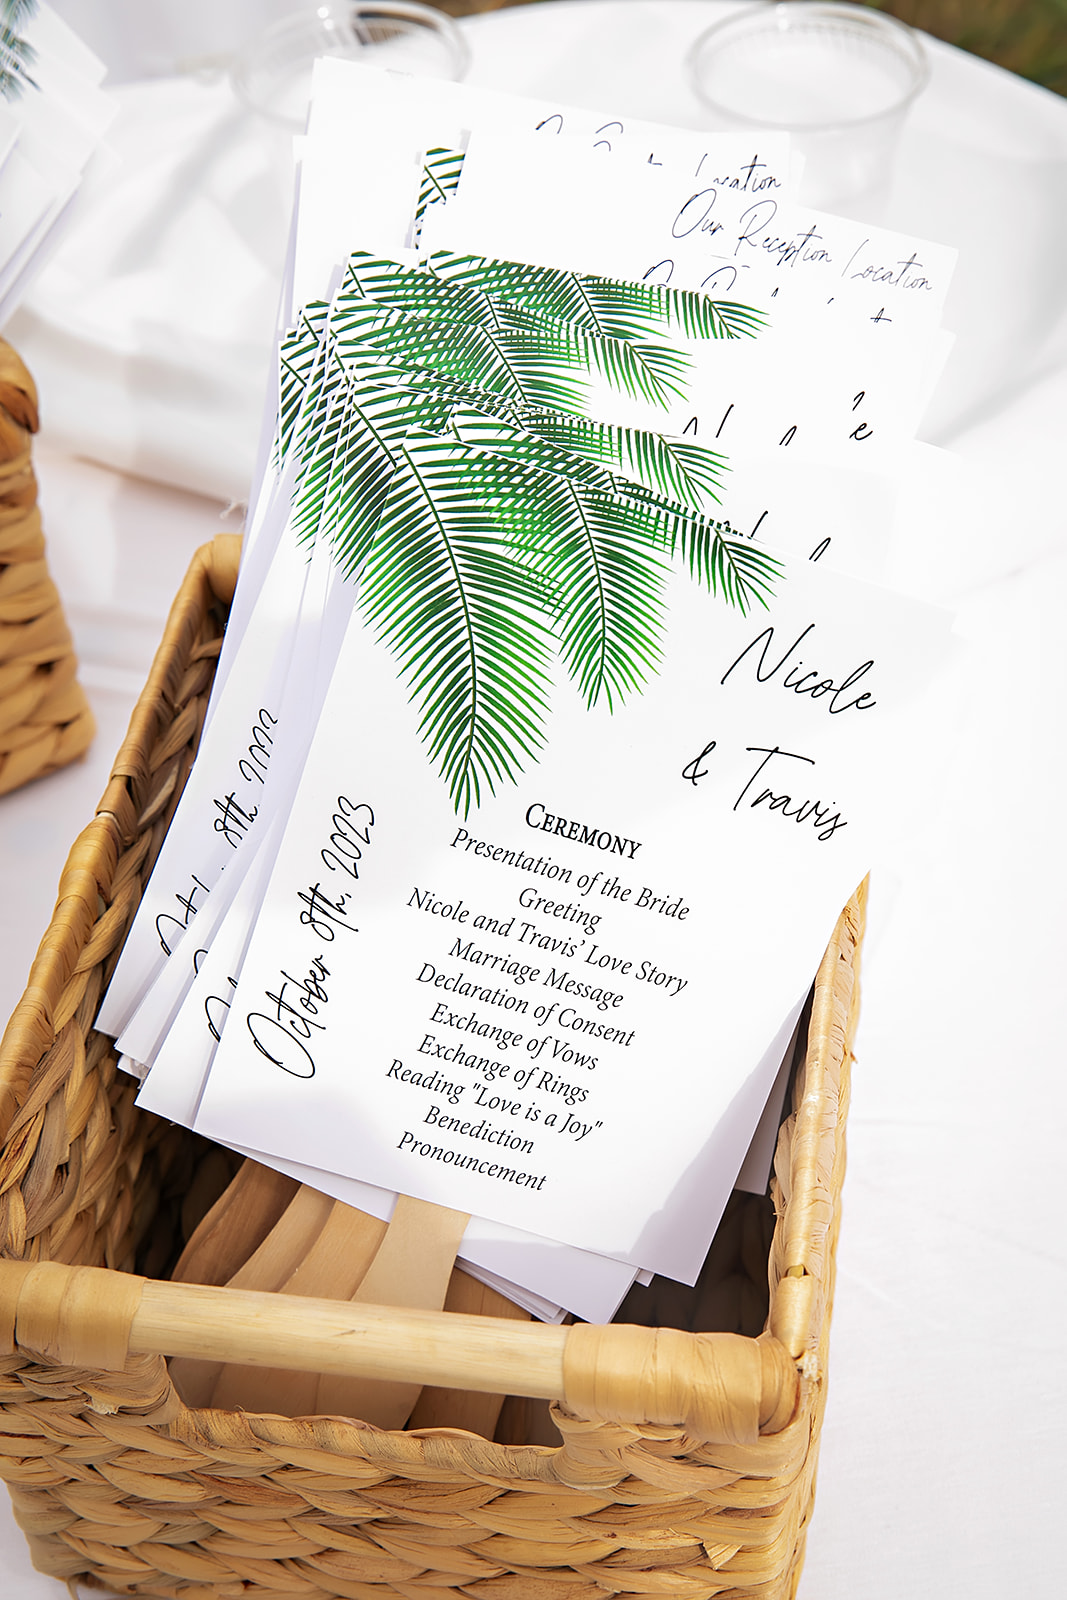 Location
Our Reception Location
Nicole
& Travis
CEREMONY
Presentation of the Bride
Greeting
Nicole and Travis' Love Story
Marriage Message
Declaration of Consent
Exchange of Vows
Exchange of Rings
Reading "Love is a Joy"
Benediction
Pronouncement
October 8th, 2023
8th,